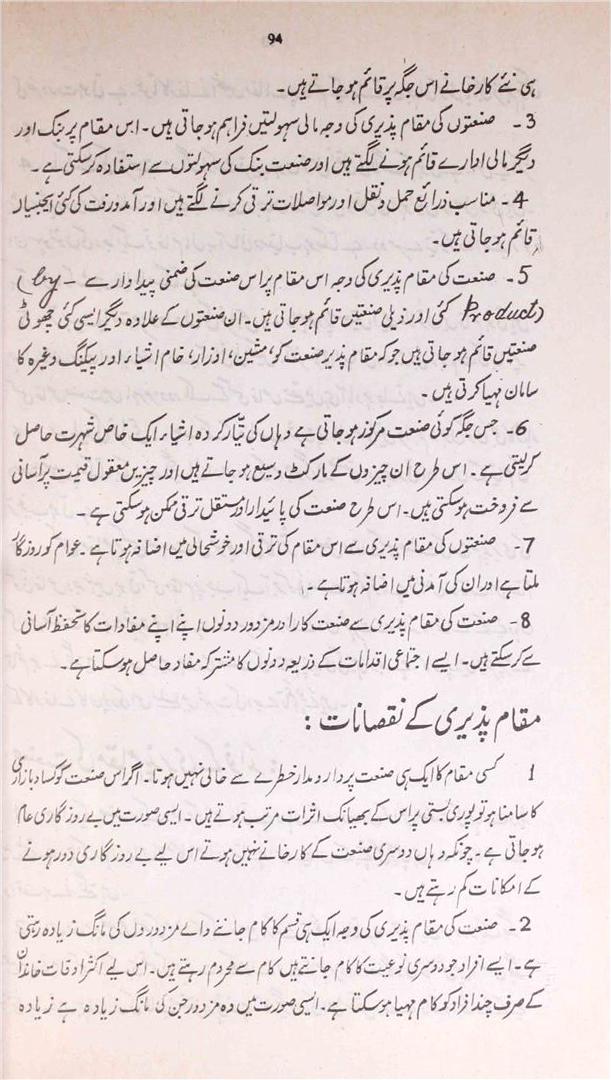 94
ہی نئے کارخانے اس جگہ پر قائم ہو جاتے ہیں۔
3 - صنعتوں کی مقام پذیری کی وجہ مالی سہولتیں فراہم ہو جاتی ہیں۔ اس مقام پر بنک اور
دیگر مالی ادارے قائم ہونے لگتے ہیں اور صنعت بنک کی سہولتوں سے استفادہ کر سکتی ہے۔
4 - مناسب ذرائع حمل و نقل اور مواصلات ترقی کرنے لگتے ہیں اور آمدورفت کی کئی ایجنسیاں
قائم ہو جاتی ہیں۔
5 - صنعت کی مقام پذیری کی وجہ اس مقام پر اس صنعت کی ضمنی پیداوار سے (by-
Product) کئی اور ذیلی صنعتیں قائم ہو جاتی ہیں۔ ان صنعتوں کے علاوہ دیگر ایسی کئی چھوٹی
صنعتیں قائم ہو جاتی ہیں جو کہ مقام پذیر صنعت کو، مشین، اوزار، خام اشیاء اور پیکنگ وغیرہ کا
سامان مہیا کرتی ہیں۔
6 - جس جگہ کوئی صنعت مرکوز ہو جاتی ہے وہاں کی تیار کردہ اشیاء ایک خاص شہرت حاصل
کرلیتی ہے۔ اس طرح ان چیزوں کے مارکٹ وسیع ہو جاتے ہیں اور چیزیں معقول قیمت پر آسانی
سے فروخت ہو سکتی ہیں۔ اس طرح صنعت کی پائیدار اور مستقل ترقی ممکن ہو سکتی ہے۔
7 - صنعتوں کی مقام پذیری سے اس مقام کی ترقی اور خوشحالی میں اضافہ ہوتا ہے۔ عوام کو روزگار
ملتا ہے اور ان کی آمدنی میں اضافہ ہوتا ہے۔
8 - صنعت کی مقام پذیری سے صنعت کار اور مزدور دونوں اپنے اپنے مفادات کا تحفظ آسانی
سے کر سکتے ہیں۔ ایسے اجتماعی اقدامات کے ذریعہ دونوں کا مشترکہ مفاد حاصل ہو سکتا ہے۔
مقام پذیری کے نقصانات :
1 کسی مقام کا ایک ہی صنعت پر دارومدار خطرے سے خالی نہیں ہوتا۔ اگر اس صنعت کو کساد بازاری
کا سامنا ہو تو پوری بستی پر اس کے بھیانک اثرات مرتب ہوتے ہیں۔ ایسی صورت میں بے روزگاری عام
ہو جاتی ہے۔ چونکہ وہاں دوسری صنعت کے کارخانے نہیں ہوتے اس لیے بے روزگاری دور ہونے
کے امکانات کم رہتے ہیں۔
2 - صنعت کی مقام پذیری کی وجہ ایک ہی قسم کا کام جاننے والے مزدوروں کی مانگ زیادہ رہتی
ہے۔ ایسے افراد جو دوسری نوعیت کا کام جانتے ہیں کام سے محروم رہتے ہیں۔ اس لیے اکثر اوقات خاندان
کے صرف چند افراد کو کام مہیا ہو سکتا ہے۔ ایسی صورت میں وہ مزدور جن کی مانگ زیادہ ہے زیادہ